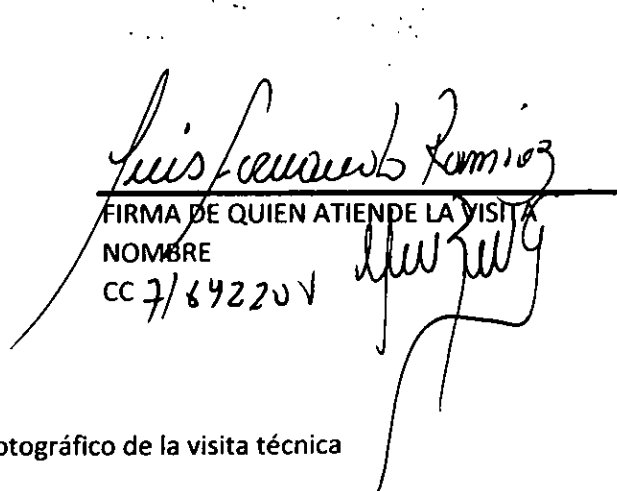 Luis Fernando Ramirez
FIRMA DE QUIEN ATIENDE LA VISITA
NOMBRE
CC
otográfico de la visita técnica